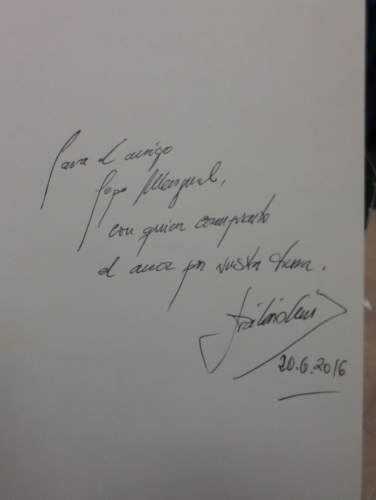 Para el amigo
Pepe Mengual,
con quien comparto
el amor por nuestra tierra.
20.6.2016